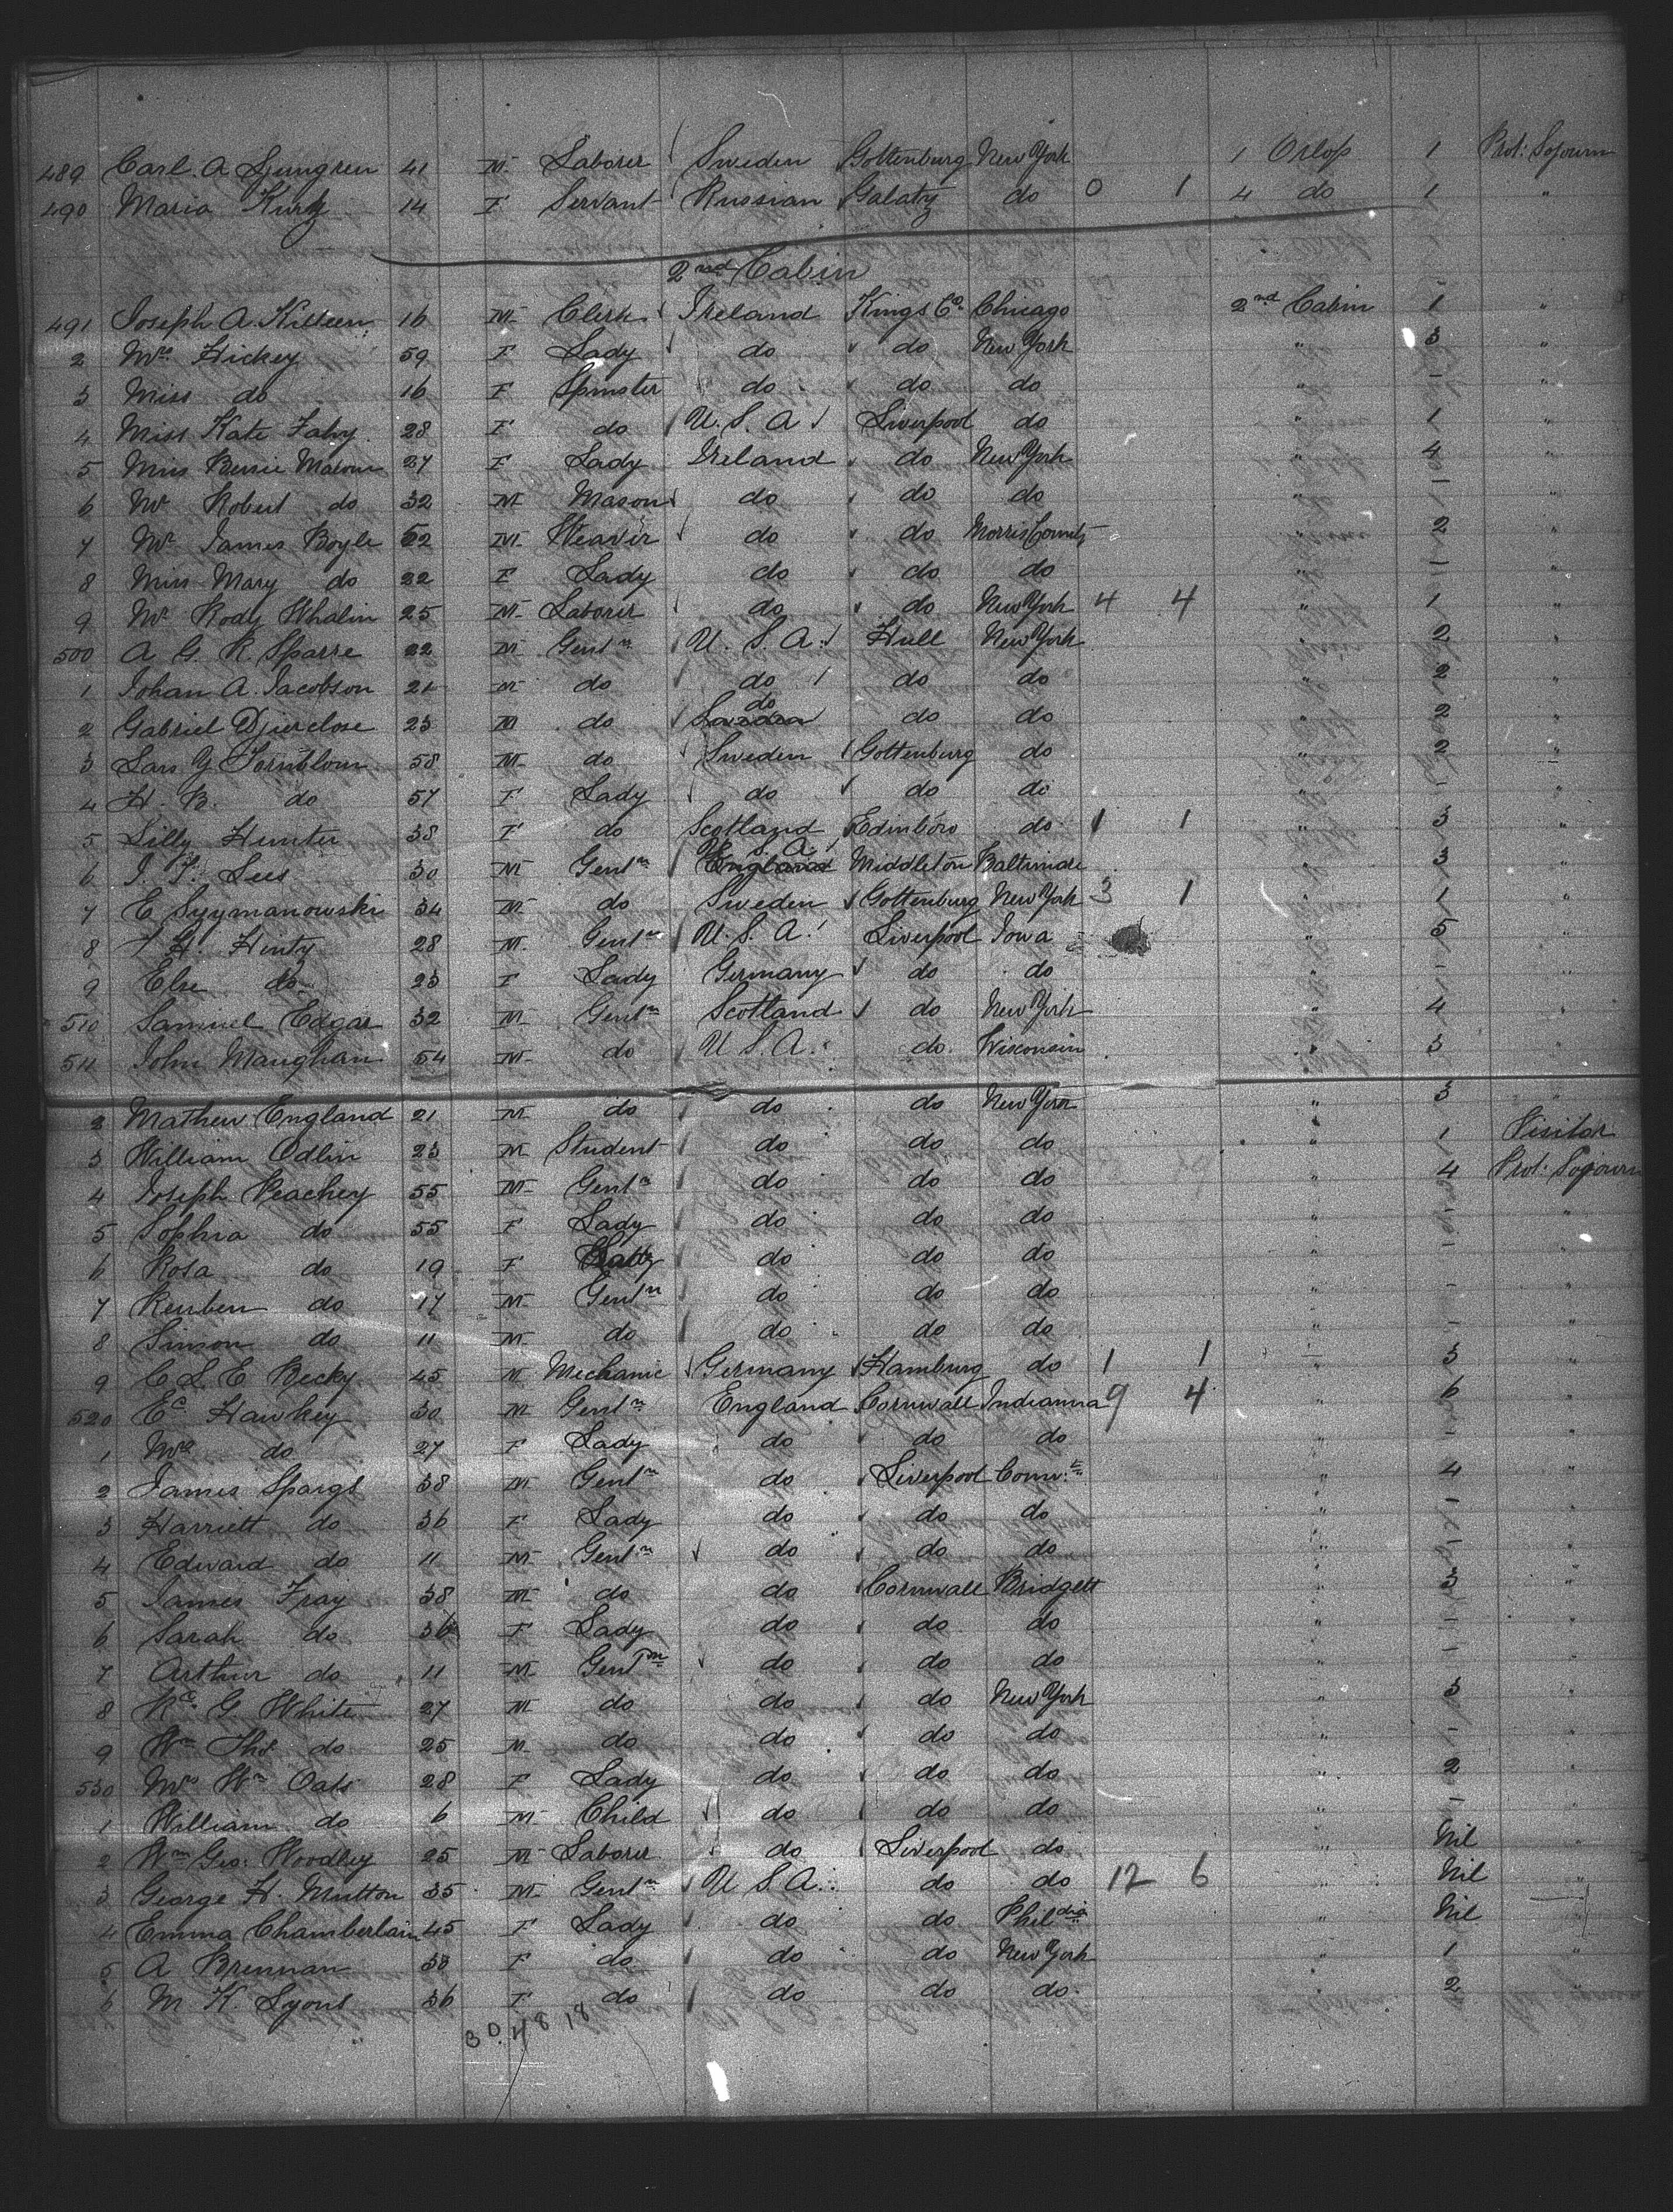 489 Carl. A Ljungren 41 M Laborer Sweden Gottenburg New York 1 Orlop 1 Prot: Sojourn
490 Maria Kurtz 14 F Servant Russian Galatz do 0 1 4 do 1 "
2nd Cabin
491 Joseph A. Killeen 16 M Clerk Ireland Kings Co. Chicago 2nd Cabin 1 "
2 Mrs. Hickey 59 F Lady do do New York " 3 "
3 Miss do 16 F Spinster do do do " - "
4 Miss Kate Fahy 28 F do U.S.A Liverpool do " 1 "
5 Miss Bessie Mason 27 F Lady Ireland do New York " 4 "
6 Mr Robert do 32 M Mason do do do " - "
7 Mr James Boyle 52 M Weaver do do Morris County " 2 "
8 Miss Mary do 22 F Lady do do do " - "
9 Mr Rody Whalin 25 M Laborer do do New York 4 4 " 1 "
500 A G. R. Sparre 22 M Gentn U.S.A. Hull New York " 2 "
1 Johan A. Jacobson 21 M do do do do " 2 "
2 Gabriel 23 M do do do do " 2 "
3 Lars Y. Tornblom 58 M do Sweden Gottenburg do " 2 "
4 H. B. do 57 F Lady do do do " - "
5 Lilly Hunter 38 F do Scotland Edinboro do 1 1 " 3 "
6 J. T. Lees 30 M Gentn U.S.A. England Middleton Baltimore " 3 "
7 E Szymanowski 34 M do Sweden Gottenburg New York 3 1 " 1 "
8 H. Hintz 28 M Gentn U.S.A. Liverpool Iowa " 5 "
9 Else do 23 F Lady Germany do do " - "
510 Samuel Edgar 32 M Gentn Scotland do New York " 4 "
511 John Maughan 54 M do U.S.A. do Wisconsin " 3 "
2 Mathew England 21 M do do do New York " 3 "
3 William Odlin 23 M Student do do do " 1 Visitor
4 Joseph Peachey 55 M Gentn do do do " 4 Prot: Sojourn
5 Sophia do 55 F Lady do do do " - "
6 Rosa do 19 F Lady do do do " - "
7 Reuben do 17 M Gentn do do do " - "
8 Simon do 11 M do do do do " - "
9 C L E Becky 45 M Mechanic Germany Hamburg do 1 1 " 3 "
520 Ec. Hawkey 30 M Gentn England Cornwall Indianna 9 4 " 6 "
1 Mrs do 27 F Lady do do do " - "
2 James Spargo 38 M Gentn do Liverpool Conn.t " 4 "
3 Harriett do 36 F Lady do do do " - "
4 Edward do 11 M Gentn do do do " - "
5 James Fray 38 M do do Cornwall Bridgett " 3 "
6 Sarah do 36 F Lady do do do " - "
7 Arthur do 11 M Gentn do do do " - "
8 Rc. G White 27 M do do do New York " 3 "
9 Wm Thos do 25 M do do do do " - "
530 Mrs Wm Oats 28 F Lady do do do " 2 "
1 William do 6 M Child do do do " - "
2 Wm Geo: Woodley 25 M Laborer do Liverpool do " Nil "
3 George H. Mutton 35 M Gentn U S A. do do 12 6 " Nil "
4 Emma Chamberlain 45 F Lady do do Phildia " Nil "
5 A Brennan 38 F do do do New York " 1 "
6 M K. Lyons 36 F do do do do " 2 "
30.48 18